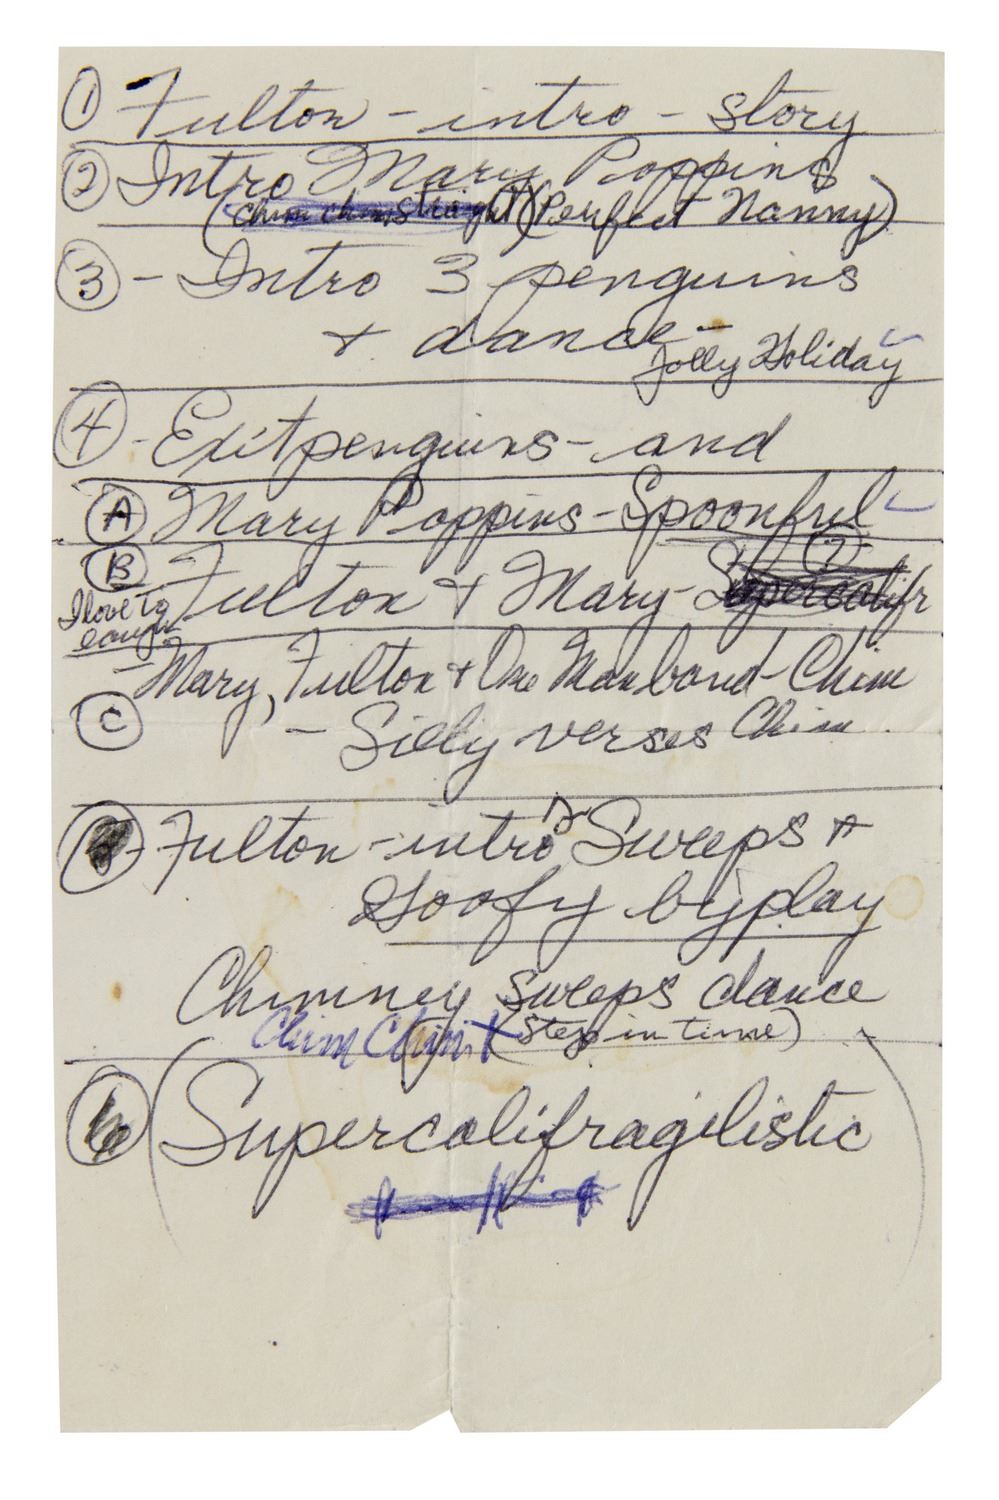 ① Fulton - intro - story
② Intro Mary Poppins
(Chim chim straight) (Perfect Nanny)
③ - Intro 3 penguins
+ dance -
Jolly Holiday
④ - Exit penguins - and
Ⓐ Mary Poppins - Spoonful -
(?)
Ⓑ Fulton + Mary - Supercalifr
I love to
laugh
- Mary, Fulton + One Man band - Chim
Ⓒ - Silly verses Chim
Fulton - intro Sweeps +
Goofy byplay
Chimney sweeps dance
Chim Chim + (Step in time)
⑥ (Supercalifragilistic)